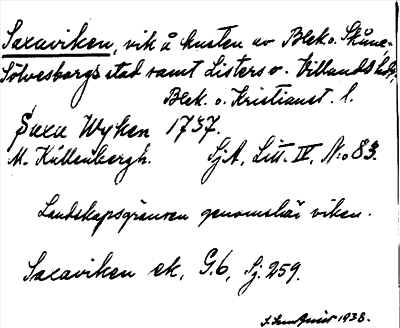 Saxaviken, vik å kusten av Blek. o. Skåne.
Sölvesborgs stad samt Listers o. Villands hdr,
Blek. o. Kristianst. l.
Saxa Wyken 1737.
M. Kullenbergh. SjA, Litt. IV, N:o 83.
Landskapsgränsen genomskär viken.
Saxaviken ek, G.6, Sj. 259.
1938.